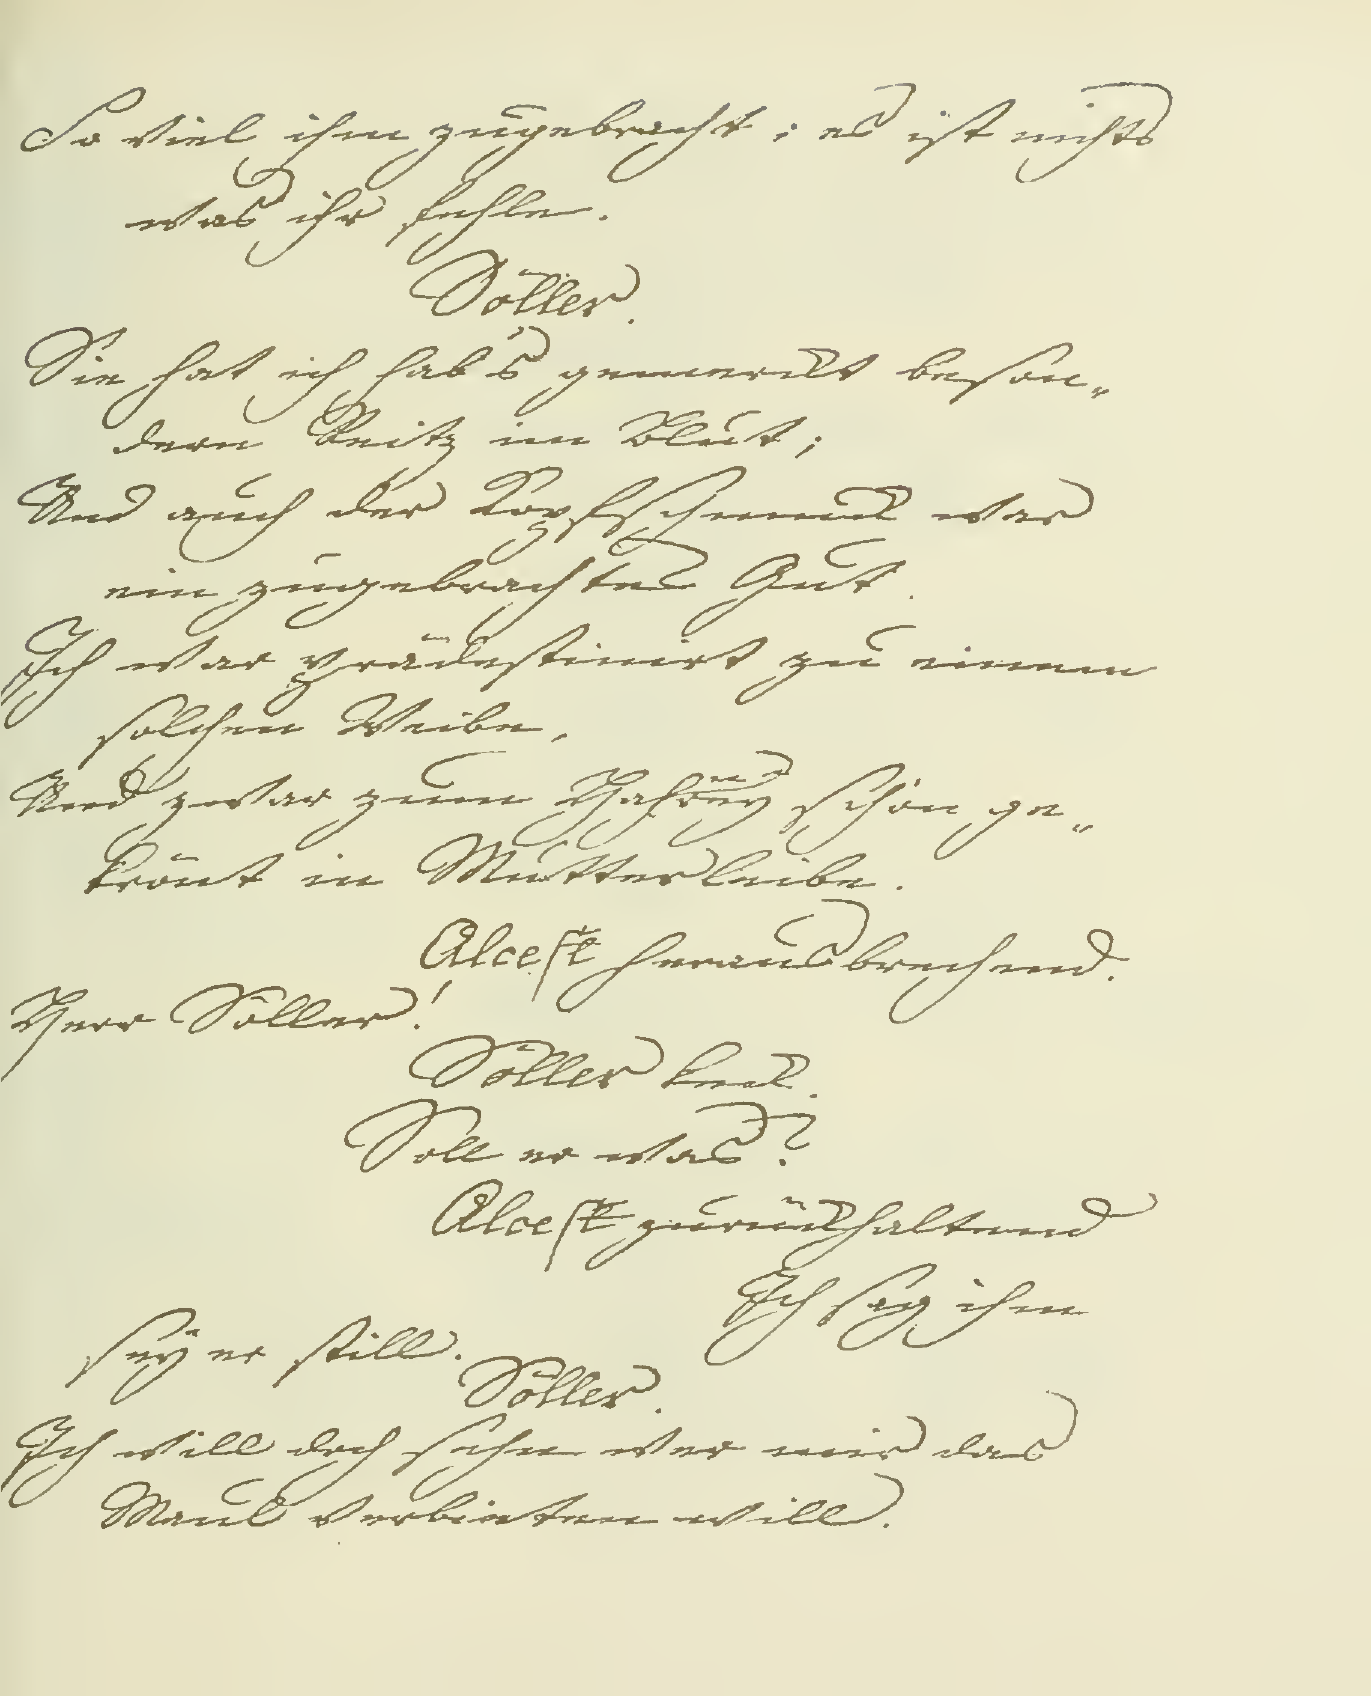 So viel ihm zugebracht; es ist nichts
was ihr fehle.
Söller.
Sie hat ich hab's gemerckt beson„
dern Reitz im Blut;
Und auch der Kopfschmuck war
ein zugebrachtes Gut.
Ich war prädestinirt zu einem
solchen Weibe,
Und zwar zum Hahnrey schon ge„
krönt in Mutterleibe.
Alceste herausbrechend.
Herr Söller!
Söller keck.
Soll er was?
Alceste zurückhaltend
Ich sag ihm
sey er still.
Söller.
Ich will doch sehn wer mir das
Maul verbieten will.